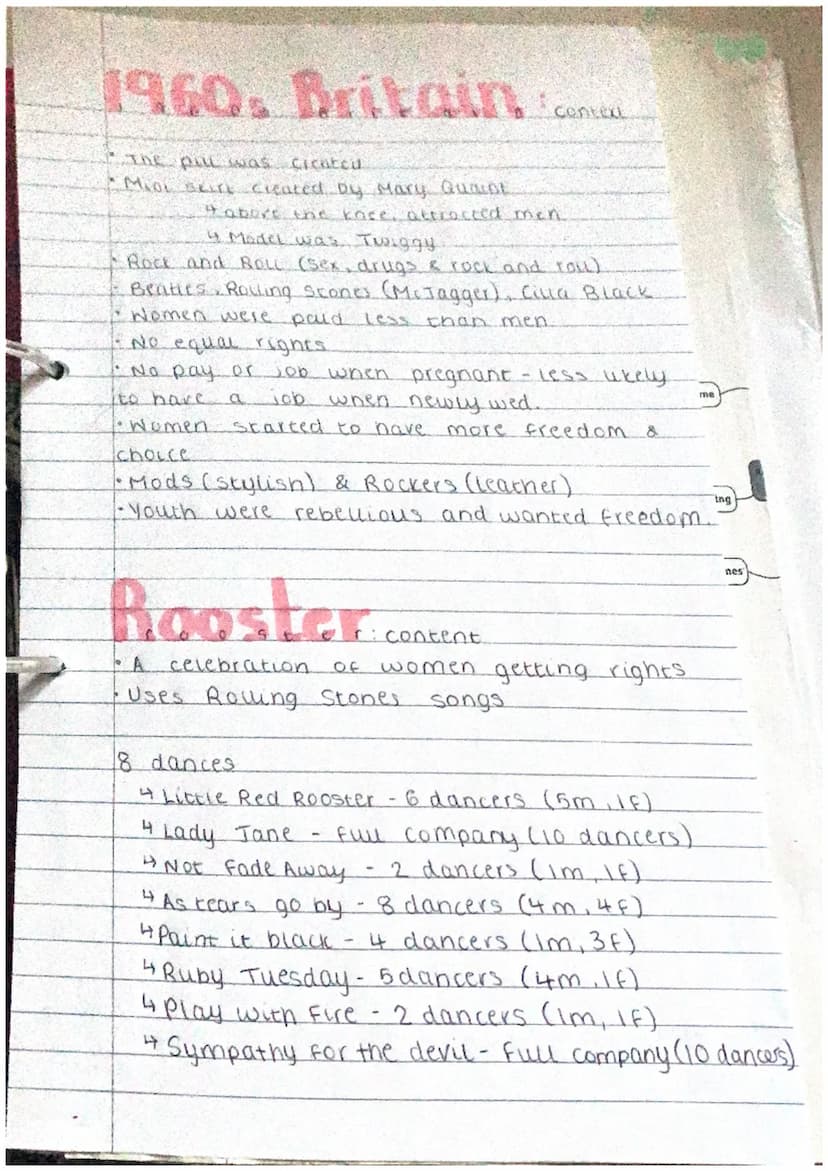 1960s Britain : context
• The pill was created
• Midi skirt created by Mary Quaint
↳ above the knee, attracted men
↳ Model was Twiggy
• Rock and Roll (sex, drugs & rock and roll)
• Beatles, Rolling Stones (McJagger), Cilla Black
• Women were paid less than men
• No equal rights
• No pay or job when pregnant - less likely
to have a job when newly wed.
me
• Women started to have more freedom &
choice
• Mods (stylish) & Rockers (leather)
ing
• Youth were rebellious and wanted freedom.
nes
Rooster : content
• A celebration of women getting rights
• Uses Rolling Stones songs
8 dances
↳ Little Red Rooster - 6 dancers (5m, 1f)
↳ Lady Jane - full company (10 dancers)
↳ Not Fade Away - 2 dancers (1m, 1f)
↳ As tears go by - 8 dancers (4m, 4f)
↳ Paint it black - 4 dancers (1m, 3f)
↳ Ruby Tuesday - 5 dancers (4m, 1f)
↳ Play with Fire - 2 dancers (1m, 1f)
↳ Sympathy for the devil - full company (10 dances)